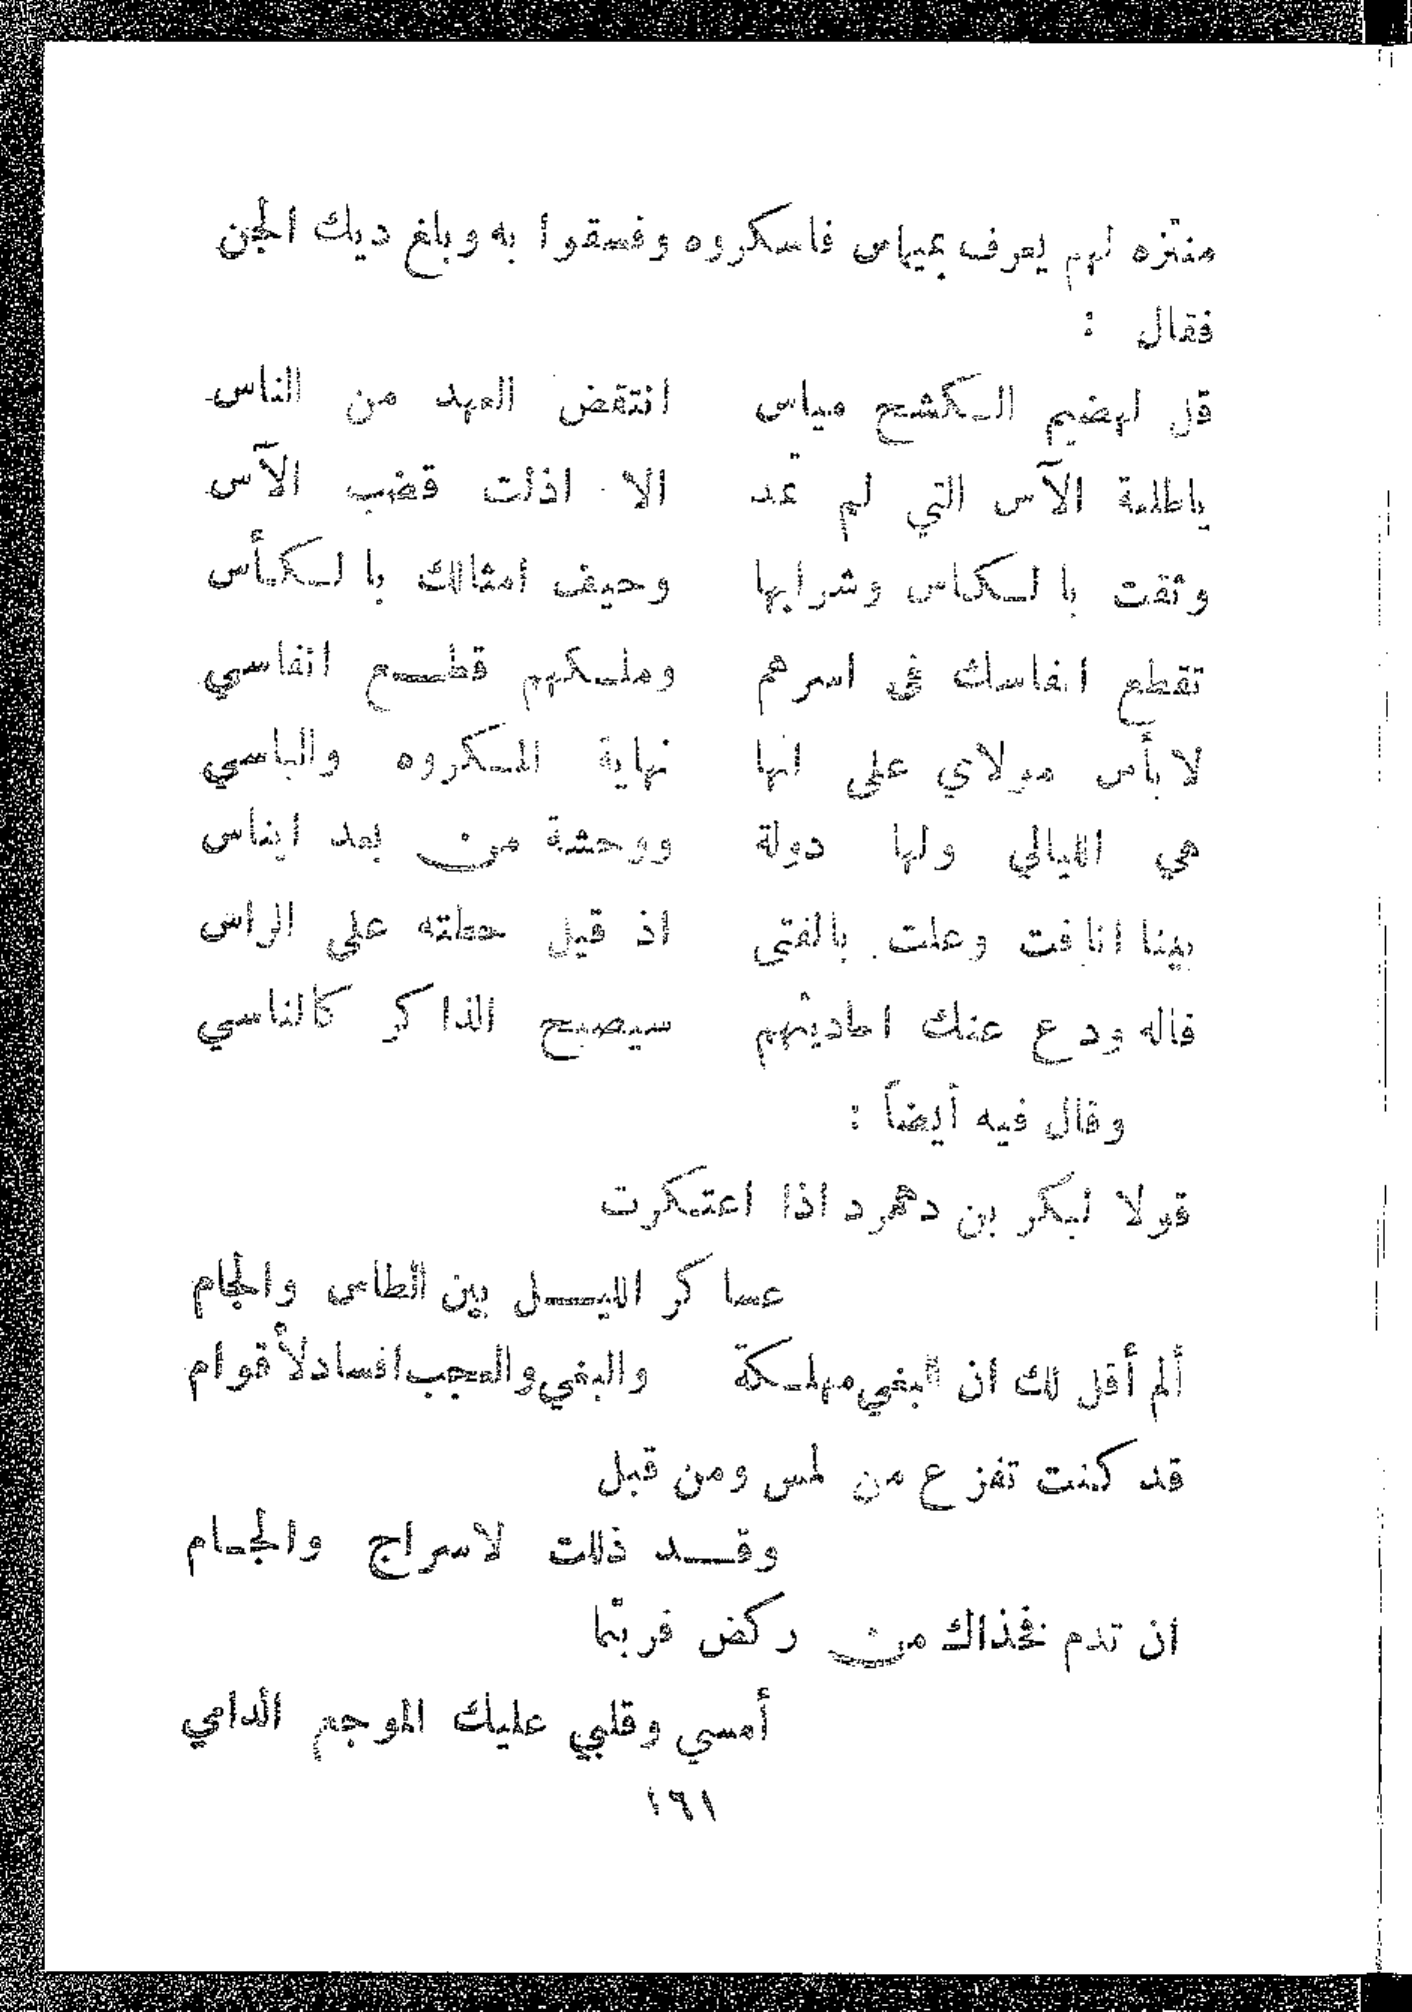 منتزه لهم يعرف بميماس فاسكروه وفسقوا به وبلغ ديك الجن
فقال :
قل لهضيم الكشح مياس انتقض العهد من الناس
ياطلعة الآس التي لم تمد الا اذلت قضب الآس
وثقت بالكاس وشرابها وحيف امثالك بالكأس
تقطع انفاسك في اسرهم وملكهم قطع انفاسي
لابأس مولاي على انها نهاية المكروه والباسي
هي الليالي ولها دولة ووحشة من بعد ايناس
بينا انافت وعلت بالفتى اذ قيل حطته على الراس
فاله ودع عنك احاديثهم سيصبح الذاكر كالناسي
وقال فيه أيضاً :
قولا لبكر بن دهمرد اذا اعتكرت
عساكر الليل بين الطاس والجام
ألم أقل لك ان البغي مهلكة والبغي والعجب افساد لأقوام
قد كنت تفزع من لمس ومن قبل
وقد ذللت لاسراج والجام
ان تدم فخذاك من ركض فربتما
أمسي وقلبي عليك الموجع الدامي